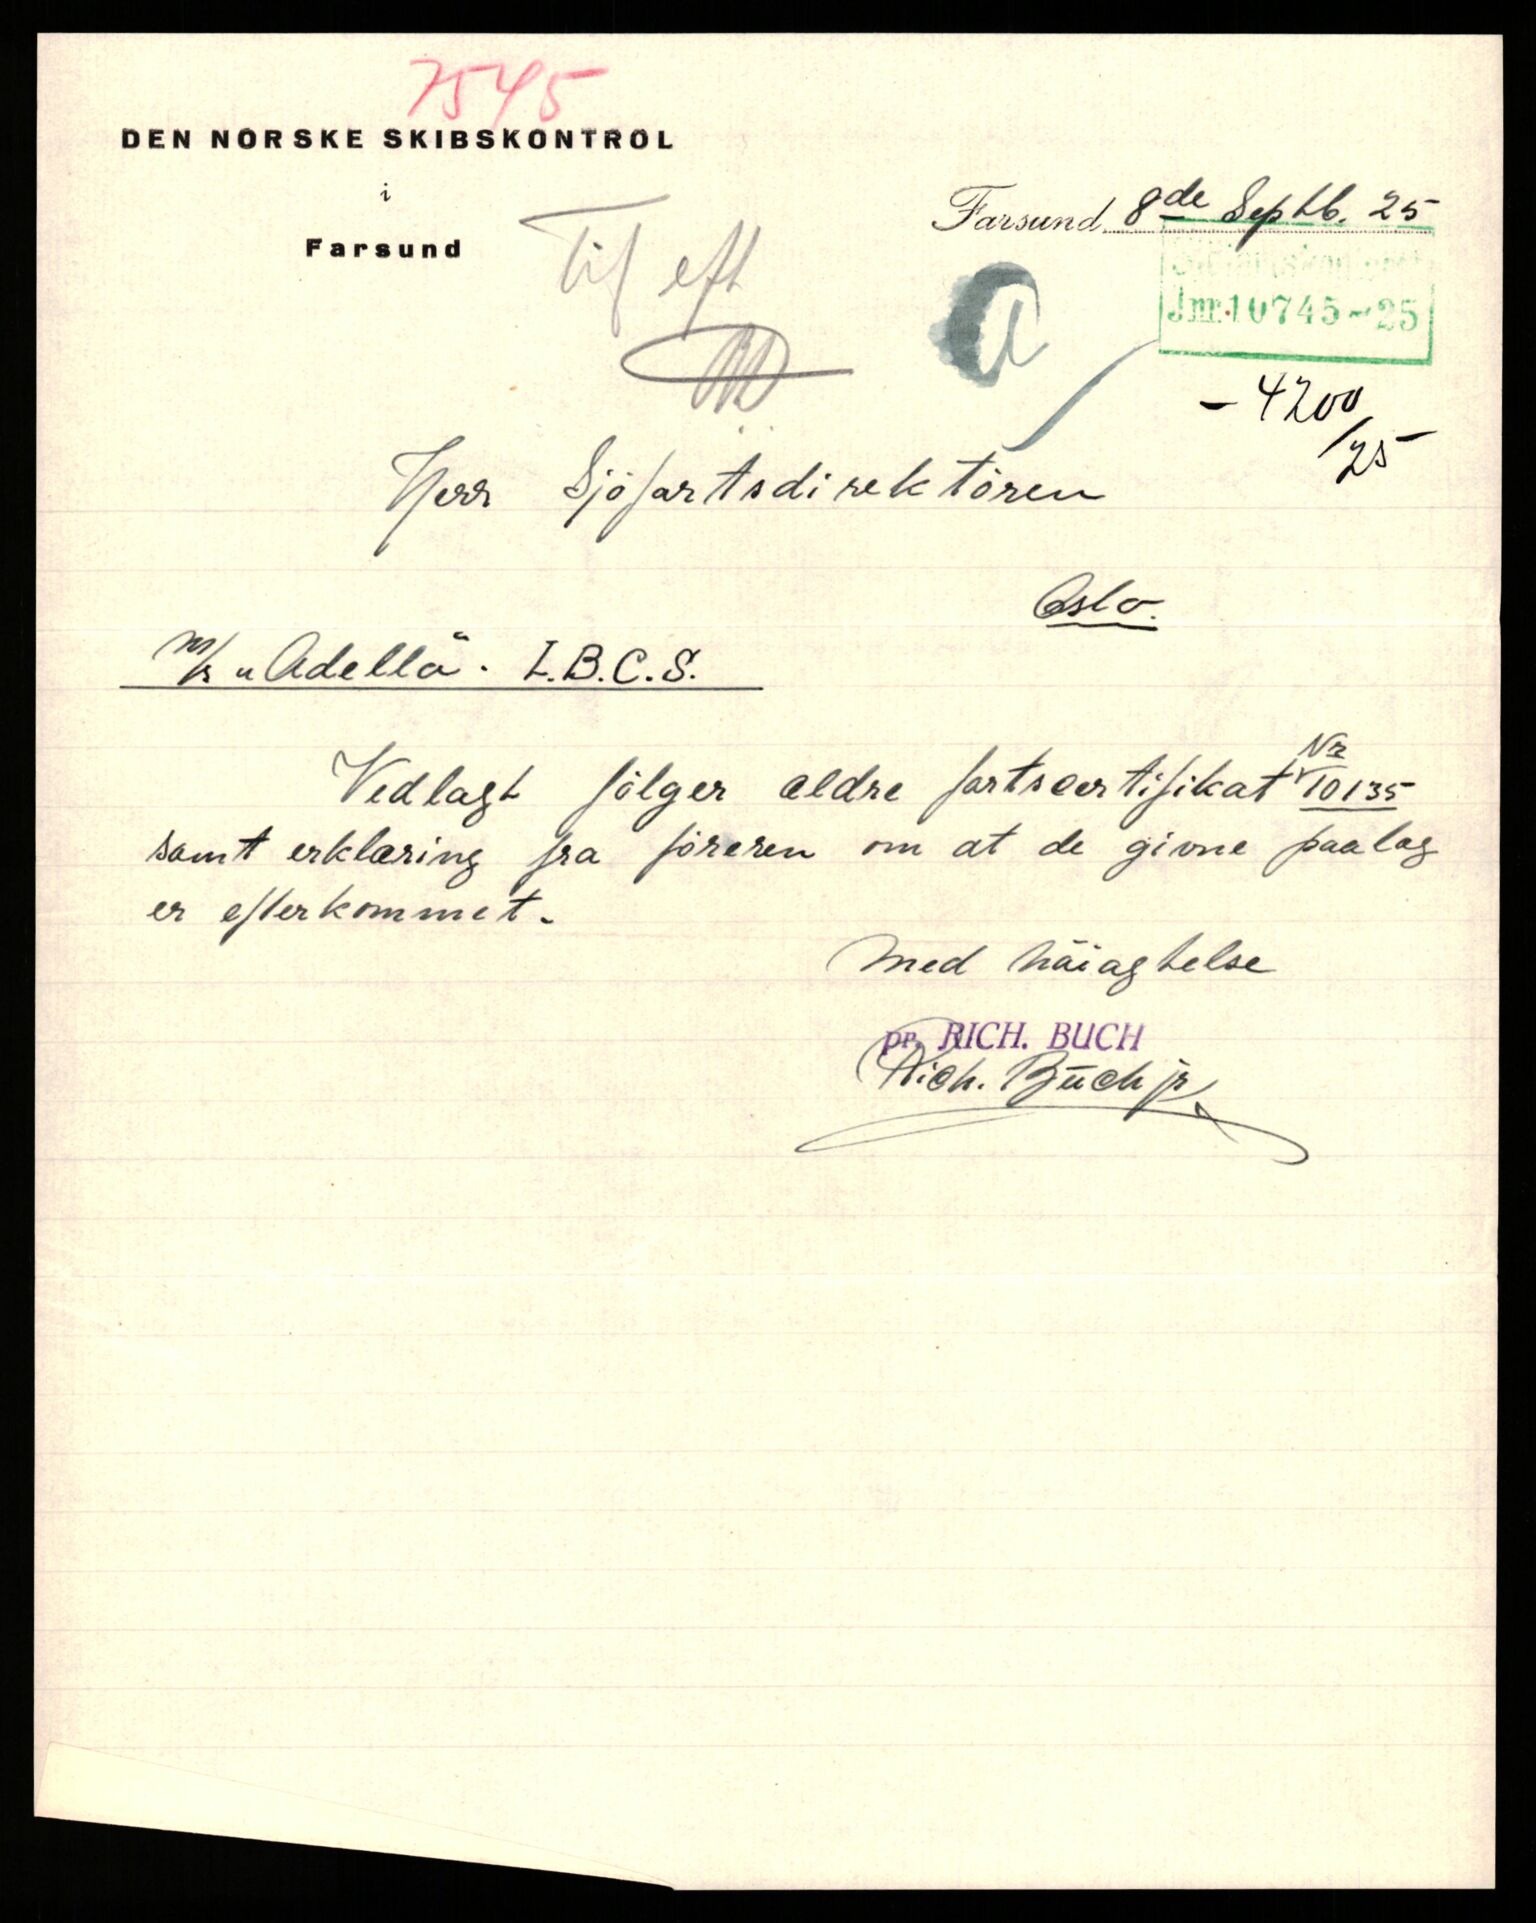 7545
DEN NORSKE SKIBSKONTROL
i
Farsund
Farsund 8de Septb. 25
Til eft
a
Jnr. 10745-25
- 4200
/25
Herr Sjöfartsdirektören
Oslo.
M/k "Adella". L.B.C.S.
Vedlagt fölger ældre fartscertifikat Nr 10135
samt erklæring fra föreren om at de givne paalag
er efterkommet.
Med höiagtelse
pr. RICH. BUCH
Rich. Buch jr